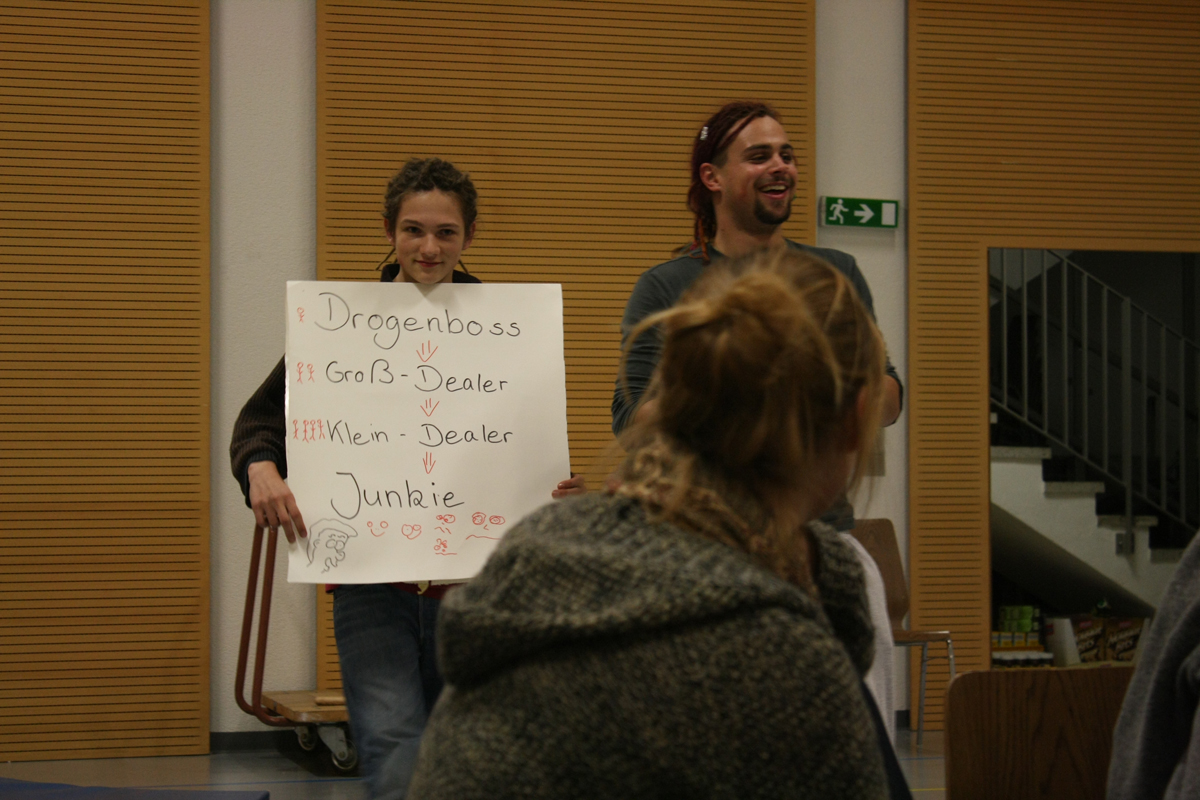 Drogenboss
Groß-Dealer
Klein-Dealer
Junkie